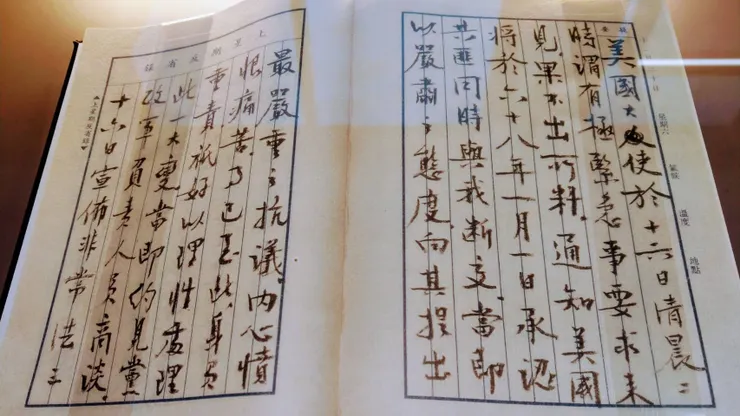 星期六 氣候 溫度 地點
美國大使於十六日清晨二
時謂有極緊急事要求來
見,果不出所料,通知美國
將於六十八年一月一日承認
共匪同時與我斷交,當即
以嚴肅之態度向其提出
上星期反省錄
最嚴重之抗議。內心憤
恨痛苦,事已至此,身負
重責,祇好以理性處理
此一大變,當即約見黨
政軍負責人員商談。
十六日宣佈非常法三
▲上星期反省錄▼